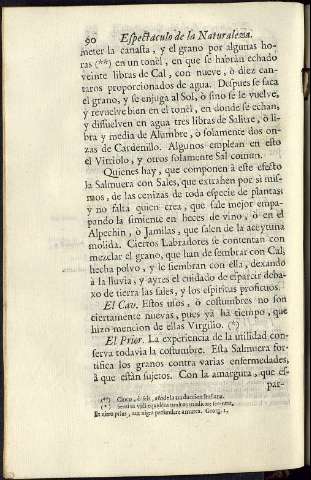 90 Espectaculo de la Naturaleza.
meter la canasta, y el grano por algunas ho-
ras (**) en un tonèl, en que se habràn echado
veinte libras de Cal, con nueve, ò diez can-
taros proporcionados de agua. Despues se saca
el grano, y se enjuga al Sol, ò sino se le vuelve,
y revuelve bien en el tonèl, en donde se echan,
y dissuelven en agua tres libras de Salitre, ò li-
bra y media de Alumbre, ò solamente dos on-
zas de Cardenillo. Algunos emplean en esto
el Vitriolo, y otros solamente Sal comun.
Quienes hay, que componen à este efecto
la Salmuera con Sales, que extrahen por si mis-
mos, de las cenizas de toda especie de plantas;
y no falta quien crea, que sale mejor empa-
pando la simiente en heces de vino, ò en el
Alpechin, ò Jamilas, que salen de la aceytuna
molida. Ciertos Labradores se contentan con
mezclar el grano, que han de sembrar con Cal,
hecha polvo, y le siembran con ella, dexando
à la lluvia, y ayres el cuidado de esparcir deba-
xo de tierra las sales, y los espiritus prolificos.
El Cav. Estos usos, ò costumbres no son
ciertamente nuevas, pues yà ha tiempo, que
hizo mencion de ellas Virgilio. (*)
El Prior. La experiencia de la utilidad con-
serva todavia la costumbre. Esta Salmuera for-
tifica los granos contra varias enfermedades,
à que estàn sujetos. Con la amargura, que es-
par-
(**) Cinco, ò seis, añade la traduccion
(*) Semina vidi equidem multos medicare serentes,
Et nitro prius, aut nigra perfundere amurca. Georg. 1.